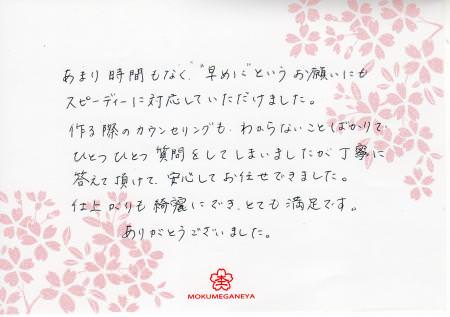 あまり時間もなく、“早めに”というお願いにも
スピーディーに対応していただけました。
作る際のカウンセリングも、わからないことばかりで
ひとつひとつ質問をしてしまいましたが丁寧に
答えて頂けて、安心してお任せできました。
仕上がりも綺麗にでき、とても満足です。
ありがとうございました。
MOKUMEGANEYA